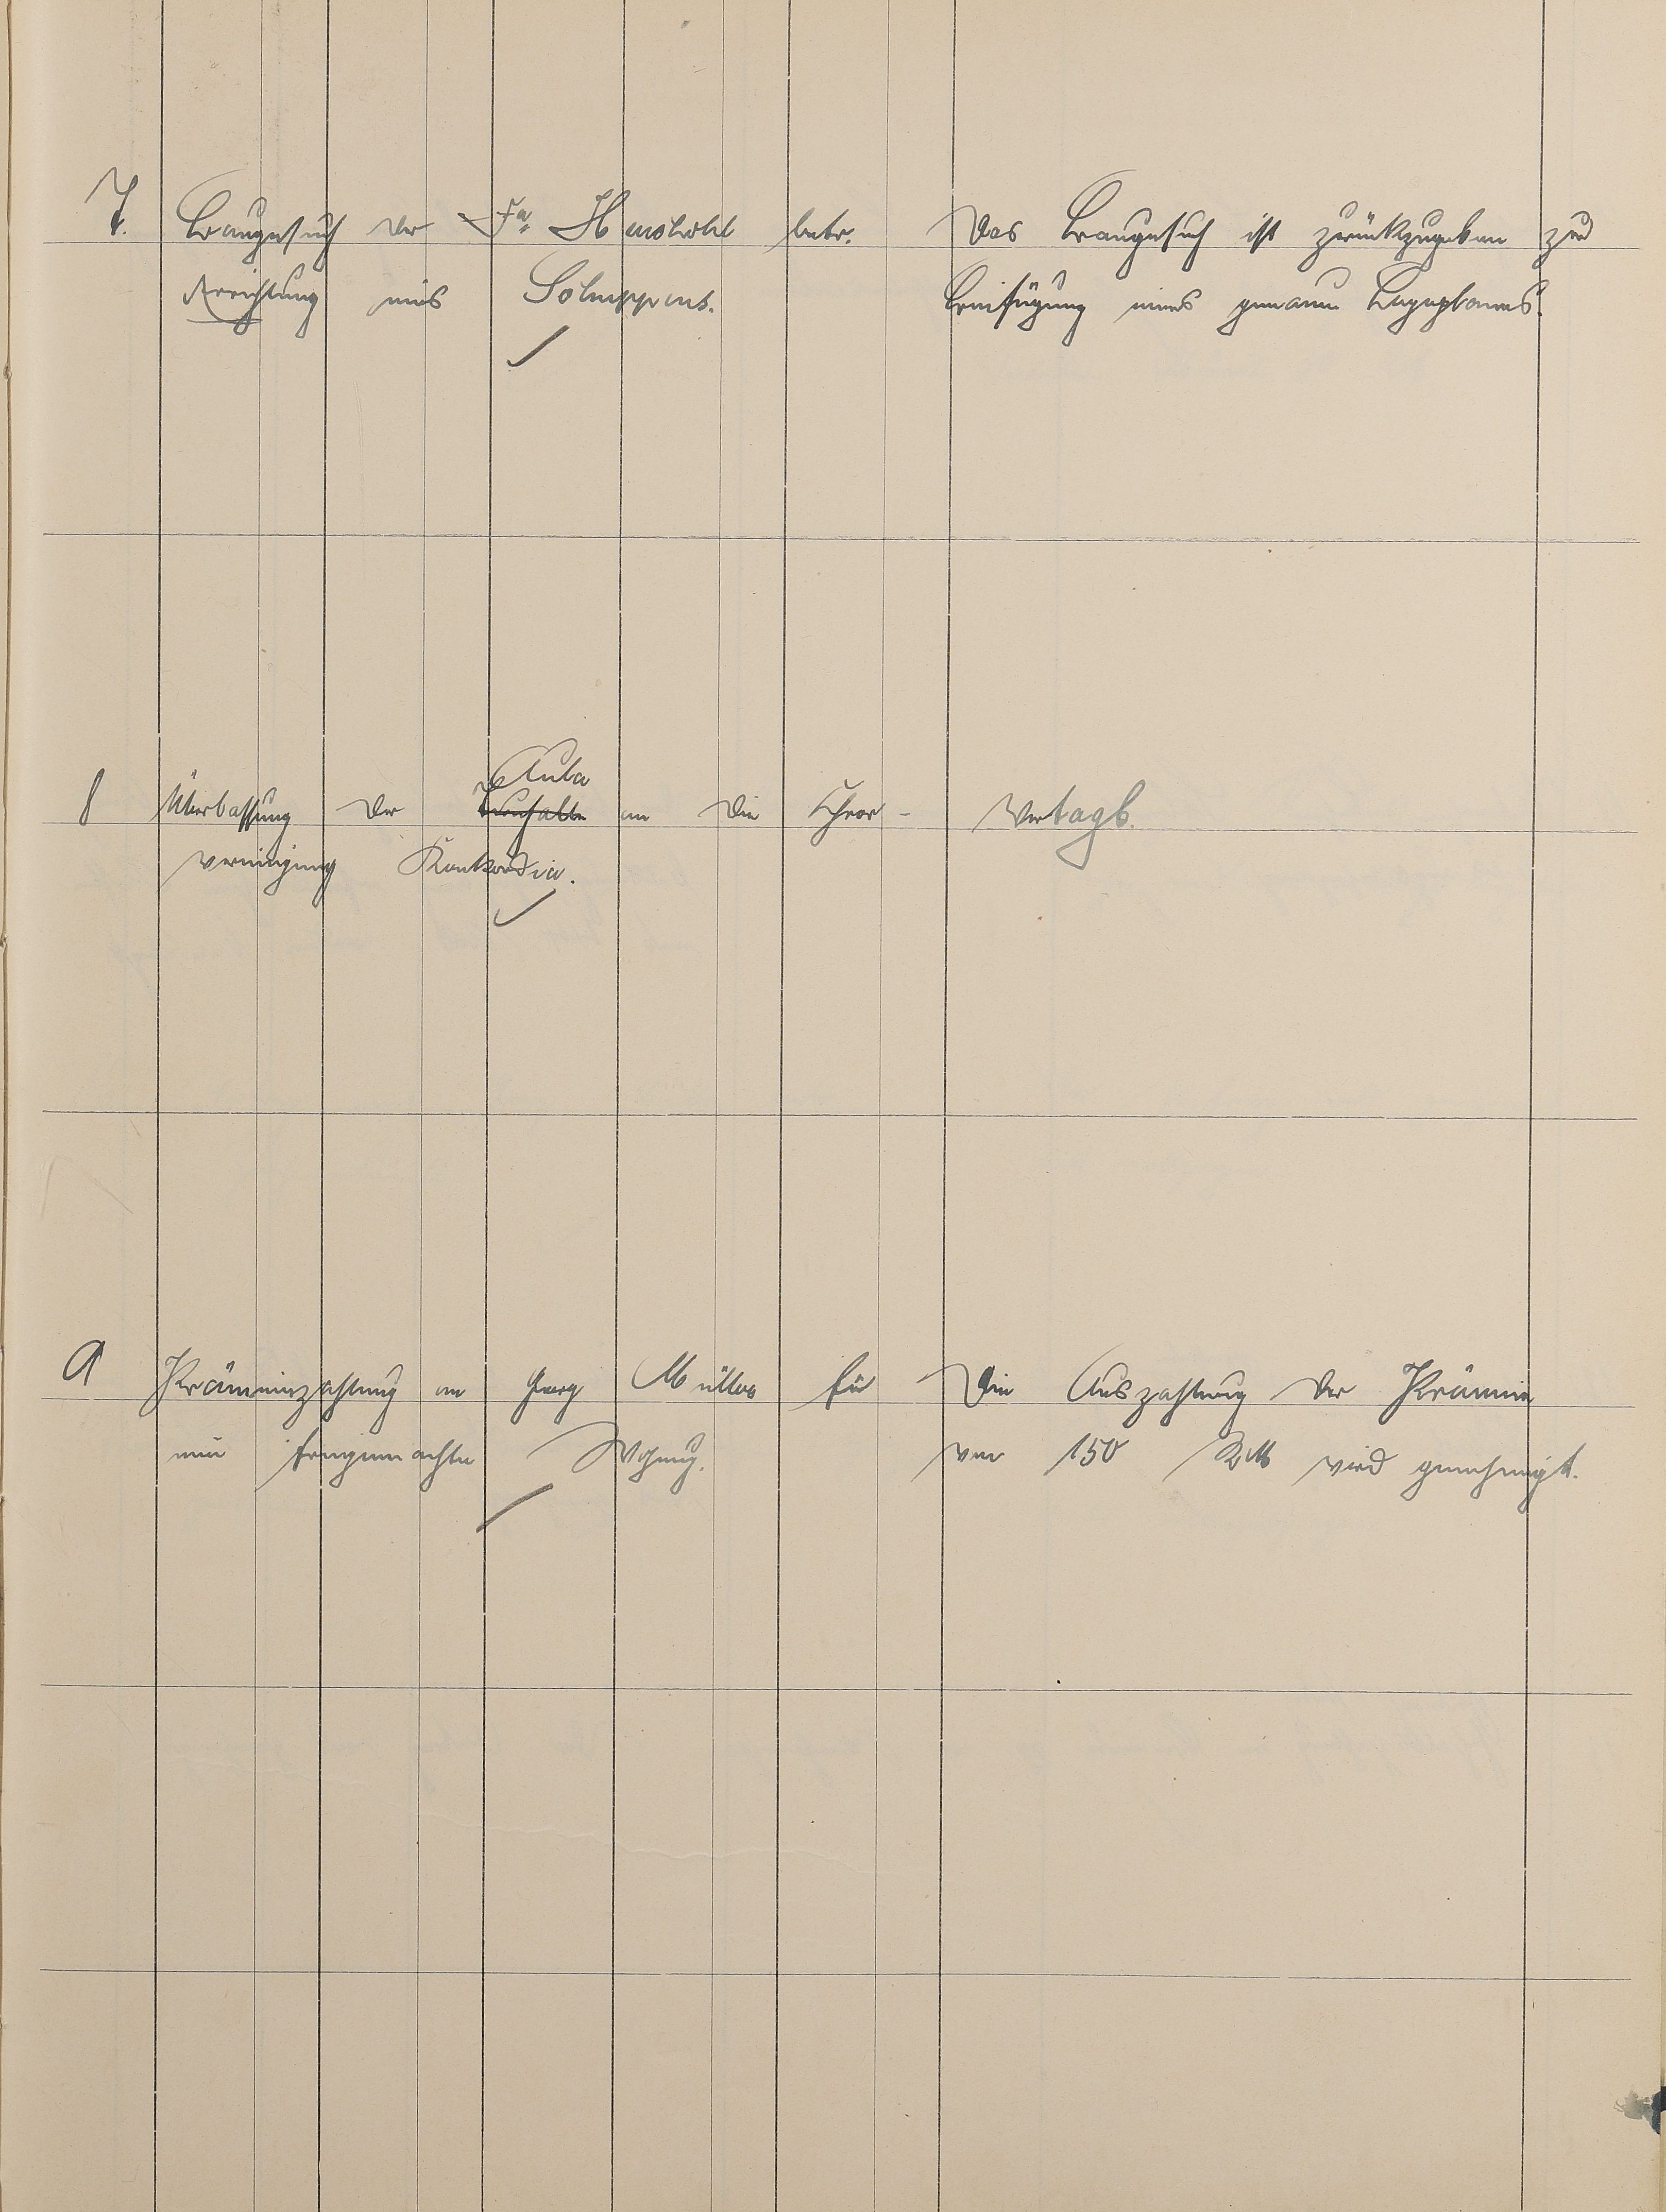 7. Baugesuch der Fa betr. Das Baugesuch ist zurückzugeben zur
Errichtung eines Schuppens. Beifügung eines genauen Lageplanes.
Aula
8 Überlassung der Turnhalle an die Chor- Vertagt.
vereinigung Konkordia.
9 Prämienzahlung an Georg Müller für Die Auszahlung der Prämie
eine freigemachte Wohnung. von 150 RM wird genehmigt.